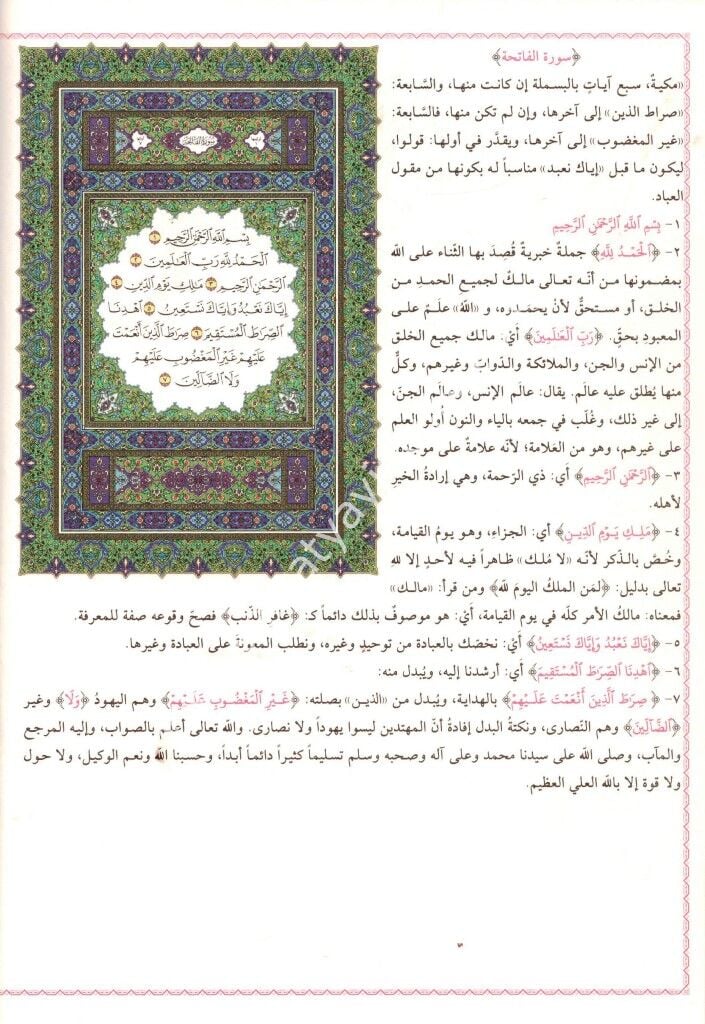 ﴿سورة الفاتحة﴾
«مكيةٌ، سبع آياتٍ بالبسملة إن كانت منها، والسَّابعة:
«صراط الذين» إلى آخرها، وإن لم تكن منها، فالسَّابعة:
«غير المغضوب» إلى آخرها، ويقدَّر في أولها: قولوا،
ليكون ما قبل «إياك نعبد» مناسباً له بكونها من مقول
العباد.
١- بِسْمِ ٱللَّهِ ٱلرَّحْمَٰنِ ٱلرَّحِيمِ
٢- ﴿ٱلْحَمْدُ لِلَّهِ﴾ جملةٌ خبريةٌ قُصِدَ بها الثَّناء على الله
بمضمونها من أنَّه تعالى مالكٌ لجميع الحمدِ من
الخلق، أو مستحقٌّ لأنْ يحمدوه، و «اللهُ» علَمٌ على
المعبودِ بحقٍّ. ﴿رَبِّ ٱلْعَٰلَمِينَ﴾ أيْ: مالك جميع الخلق
من الإنس والجن، والملائكة والدَّوابّ وغيرهم، وكلٌّ
منها يُطلق عليه عالَم. يقال: عالَم الإنس، وعالَم الجنّ،
إلى غير ذلك، وغُلِّب في جمعه بالياء والنون أُولو العلم
على غيرهم، وهو من العَلامة؛ لأنّه علامةٌ على موجده.
٣- ﴿ٱلرَّحْمَٰنِ ٱلرَّحِيمِ﴾ أَي: ذي الرَّحمة، وهي إرادةُ الخيرِ
لأهله.
٤- ﴿مَٰلِكِ يَوْمِ ٱلدِّينِ﴾ أَي: الجزاءِ، وهو يومُ القيامة،
وخُصَّ بالذِّكر لأنَّه «لا مُلك» ظاهراً فيه لأحدٍ إلا لله
تعالى بدليل: ﴿لمَن الملكُ اليومَ لله﴾ ومن قرأ: «مالك»
فمعناه: مالكُ الأمر كلِّه في يوم القيامة، أَيْ: هو موصوفٌ بذلك دائماً كـ: ﴿غافر الذَّنب﴾ فصحَّ وقوعه صفة للمعرفة.
٥- ﴿إِيَّاكَ نَعْبُدُ وَإِيَّاكَ نَسْتَعِينُ﴾ أَيْ: نخصّك بالعبادة من توحيدٍ وغيره، ونطلب المعونة على العبادة وغيرها.
٦- ﴿ٱهْدِنَا ٱلصِّرَٰطَ ٱلْمُسْتَقِيمَ﴾ أَي: أرشدنا إليه، ويُبدل منه:
٧- ﴿صِرَٰطَ ٱلَّذِينَ أَنْعَمْتَ عَلَيْهِمْ﴾ بالهداية، ويُبدل من «الذين» بصلته: ﴿غَيْرِ ٱلْمَغْضُوبِ عَلَيْهِمْ﴾ وهم اليهودُ ﴿وَلَا﴾ وغير
﴿ٱلضَّآلِّينَ﴾ وهم النَّصارى، ونكتةُ البدل إفادةُ أنّ المهتدين ليسوا يهوداً ولا نصارى. والله تعالى أعلم بالصواب، وإليه المرجع
والمآب، وصلى الله على سيدنا محمد وعلى آله وصحبه وسلم تسليماً كثيراً دائماً أبداً، وحسبنا الله ونعم الوكيل، ولا حول
ولا قوة إلا بالله العلي العظيم.
سورة الفاتحة
بِسْمِ ٱللَّهِ ٱلرَّحْمَٰنِ ٱلرَّحِيمِ ١
ٱلْحَمْدُ لِلَّهِ رَبِّ ٱلْعَٰلَمِينَ ٢
ٱلرَّحْمَٰنِ ٱلرَّحِيمِ ٣ مَٰلِكِ يَوْمِ ٱلدِّينِ ٤
إِيَّاكَ نَعْبُدُ وَإِيَّاكَ نَسْتَعِينُ ٥ ٱهْدِنَا
ٱلصِّرَٰطَ ٱلْمُسْتَقِيمَ ٦ صِرَٰطَ ٱلَّذِينَ أَنْعَمْتَ
عَلَيْهِمْ غَيْرِ ٱلْمَغْضُوبِ عَلَيْهِمْ
وَلَا ٱلضَّآلِّينَ ٧